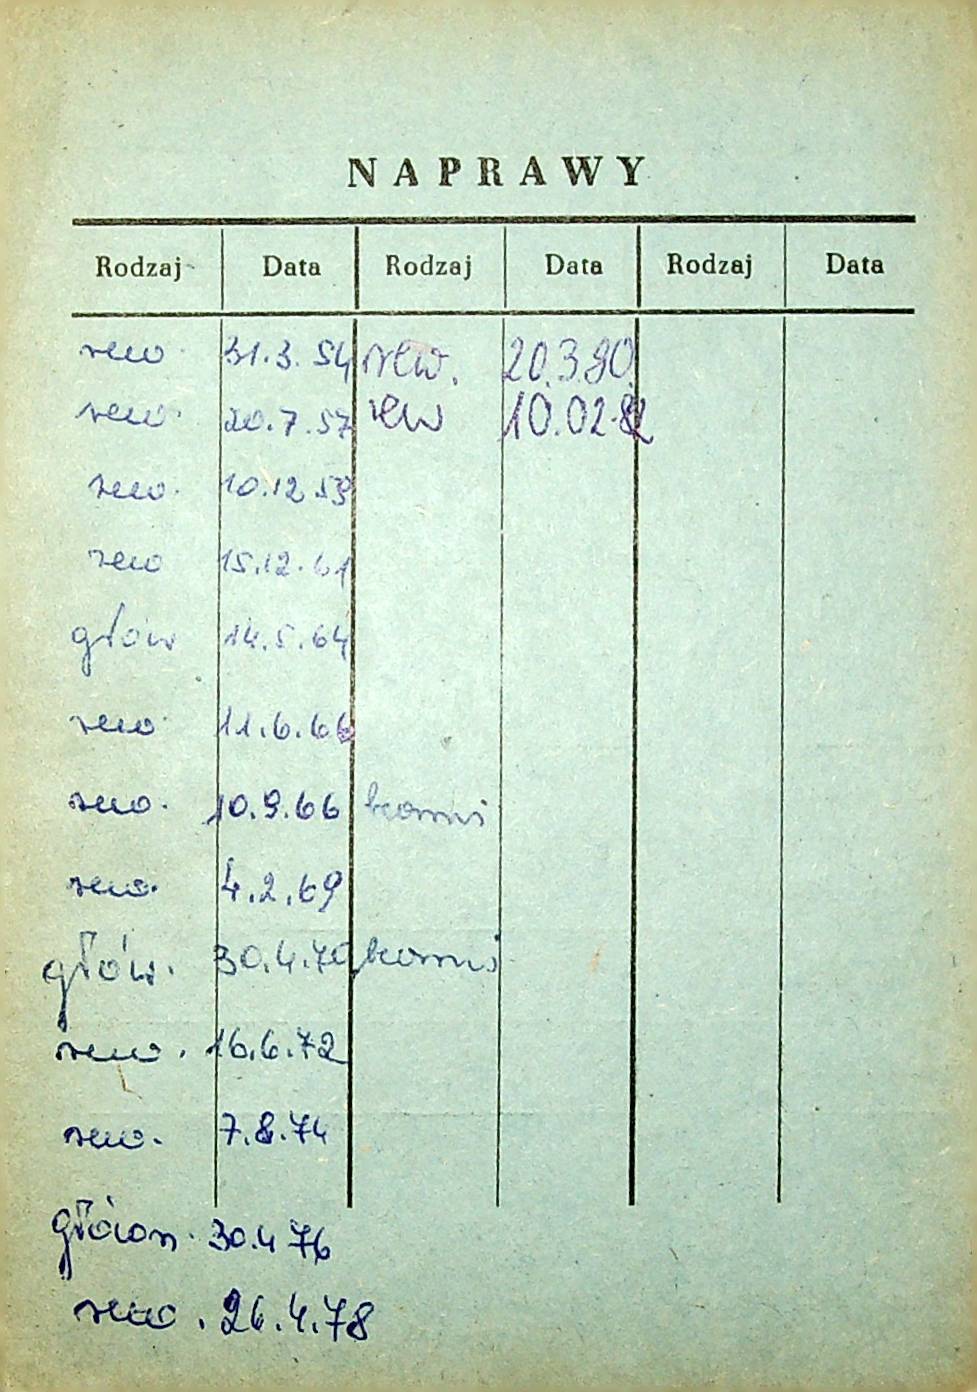 NAPRAWY
Rodzaj Data Rodzaj Data Rodzaj Data
rew. 31.3.54 rew. 20.3.80
rew. 20.7.57 rew 10.02.82
rew. 10.12.59
rew 15.12.61
głów 14.5.64
rew. 11.6.66
rew. 10.9.66
rew. 4.2.69
głów. 30.4.70
rew. 16.6.72
rew. 7.8.74
główn. 30.4 76
rew. 26.4.78